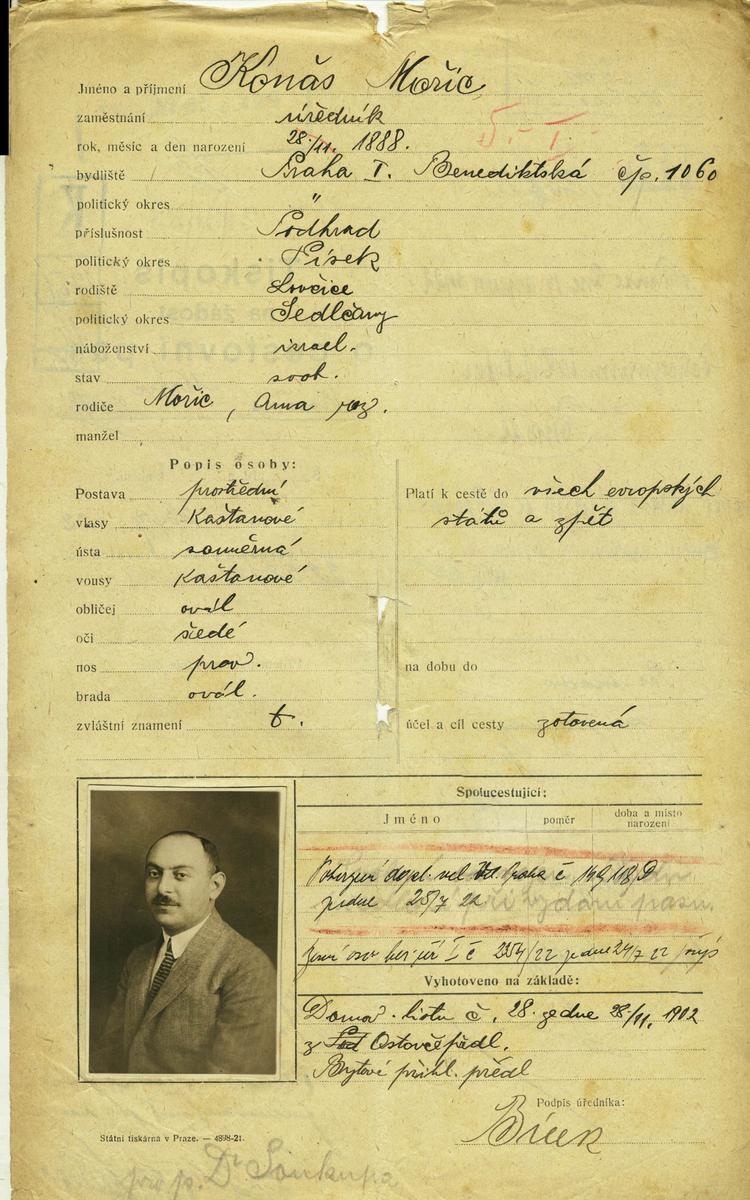 Jméno a příjmení Konäs Mořic
zaměstnání úředník
rok, měsíc a den narození 28./11. 1888.
5. I.
bydliště Praha I. Benediktská čp. 1060
politický okres "
příslušnost Podhrad
politický okres Písek
rodiště Lovčice
politický okres Sedlčany
náboženství israel.
stav svob.
rodiče Mořic, Anna roz.
manžel
Popis osoby:
Postava prostřední
vlasy Kaštanové
ústa souměrná
vousy Kaštanové
obličej ovál
oči šedé
nos prav.
brada ovál.
zvláštní znamení
Platí k cestě do všech evropských
států a zpět
na dobu do
účel a cíl cesty zotovená
Spolucestující:
Jméno poměr doba a místo narození
Praha č
ze dne 25/7 22
při vydání pasu
I č 22 ze dne 24/7 22
Vyhotoveno na základě:
Domov. listu č. 28. ze dne 28./11. 1902
z Ostovče předl.
Bytové přihl. předl
Podpis úředníka:
Státní tiskárna v Praze. — 4898-21.
Dr Soukupa